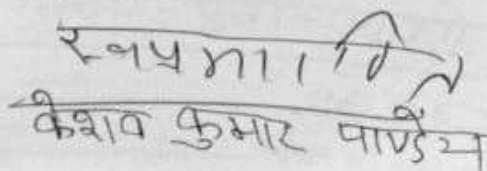 स्वप्रमाणित
केशव कुमार पाण्डेय